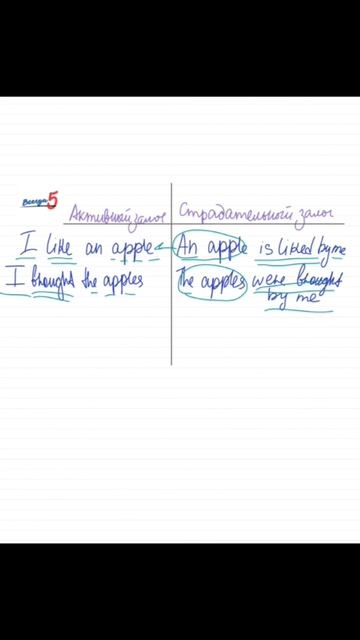 Всегда 5
Активный залог Страдательный залог
I like an apple An apple is liked by me
I brought the apples The apples were brought
by me